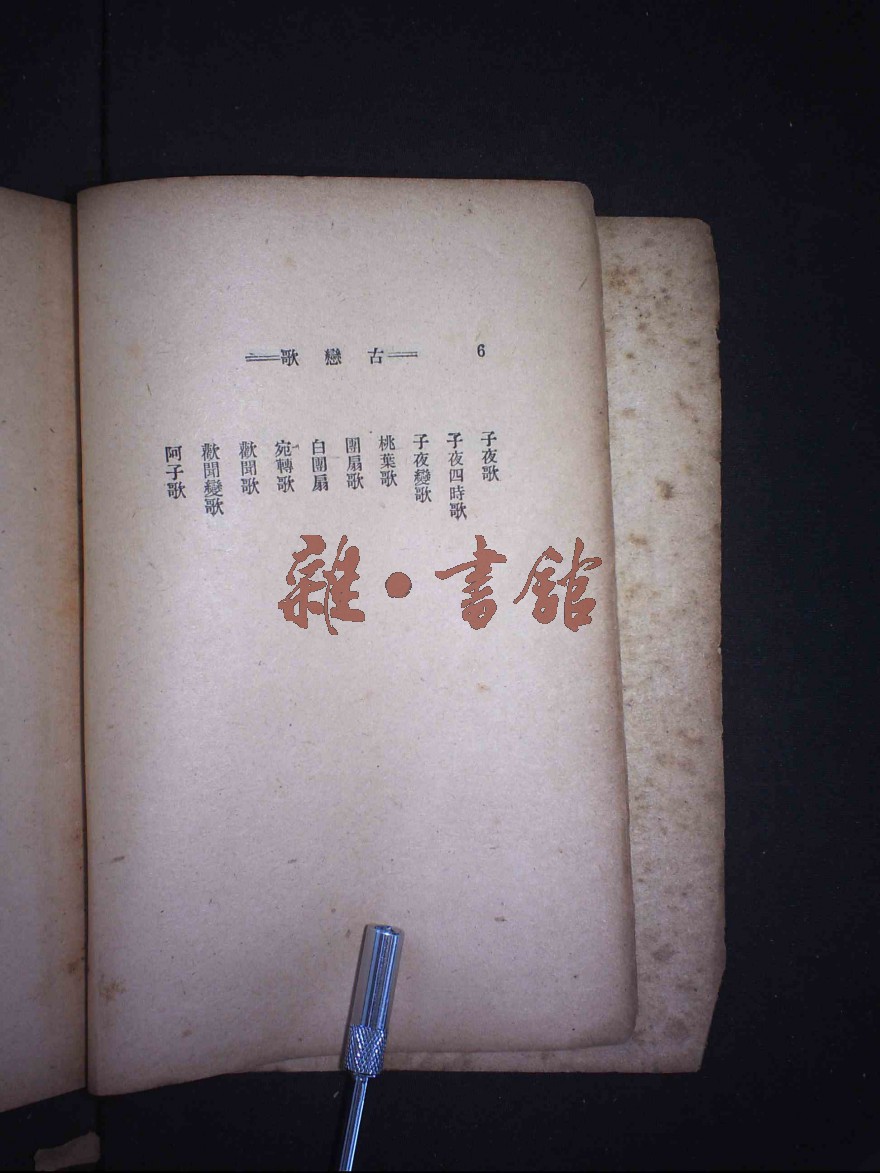 6
古戀歌
子夜歌
子夜四時歌
子夜變歌
桃葉歌
團扇歌
白團扇
宛轉歌
歡聞歌
歡聞變歌
阿子歌
雜·書館